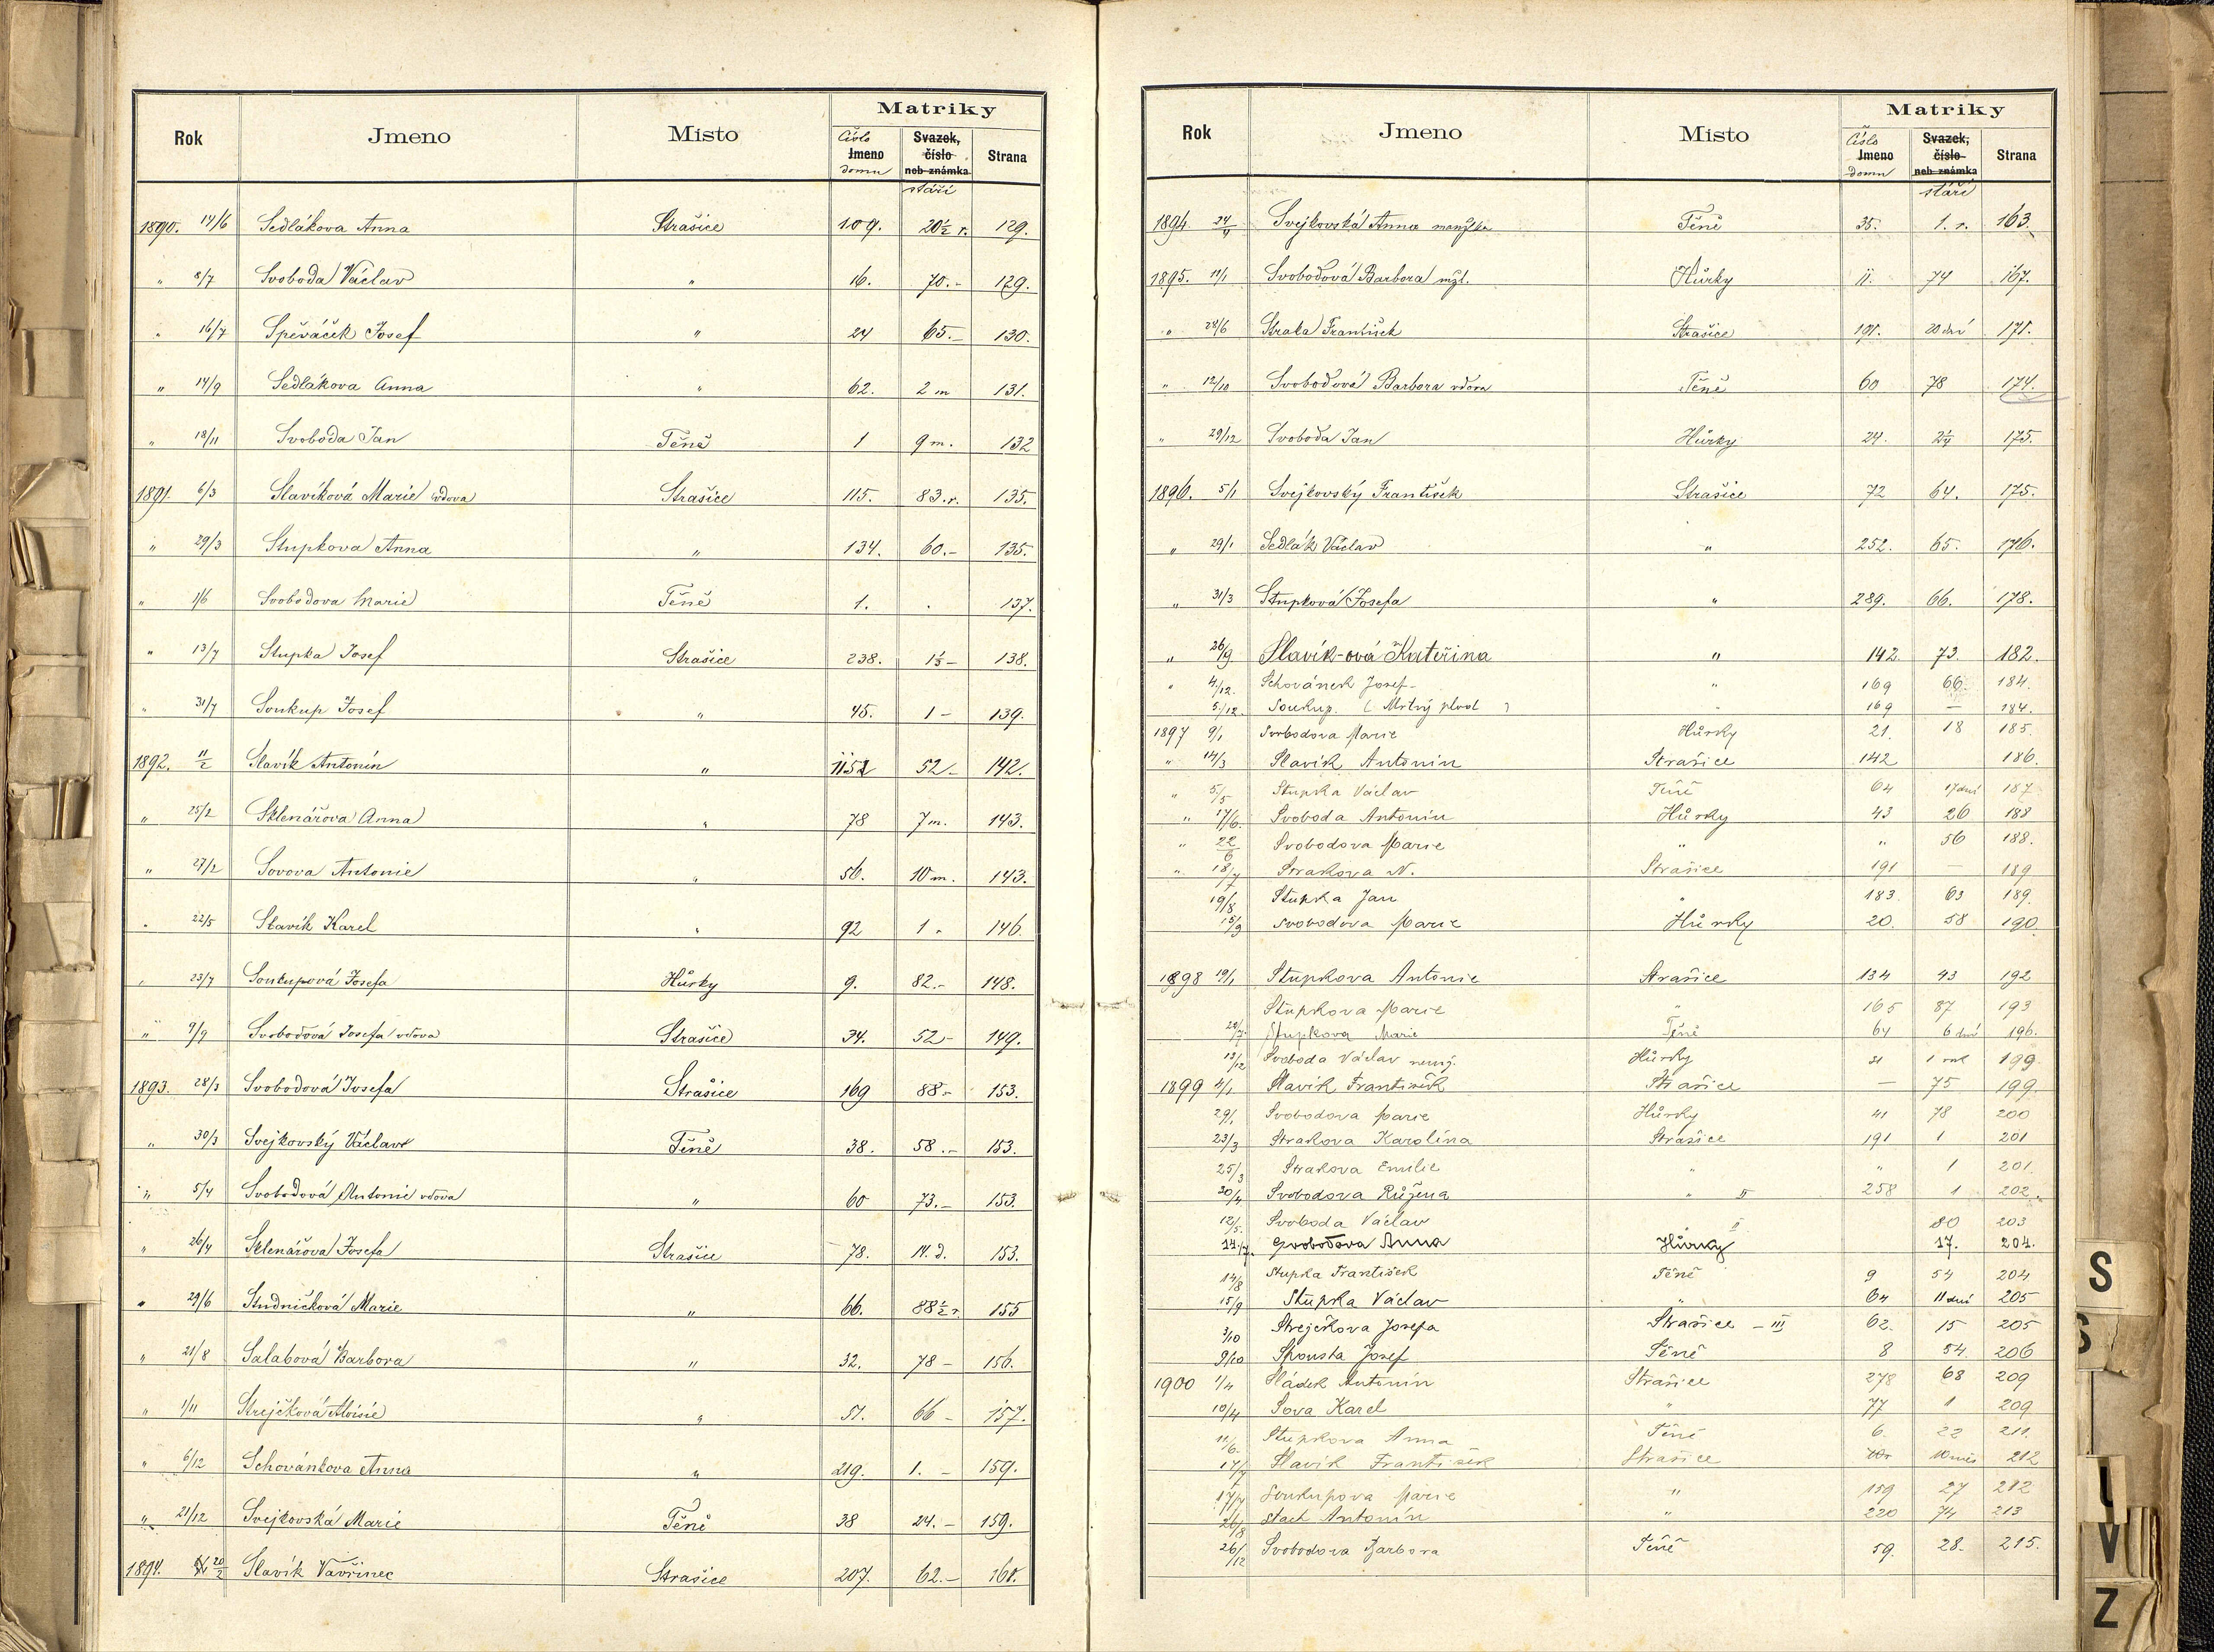 Matriky
Rok Jmeno Místo Číslo Jmeno domu Svazek, číslo neb známka stáří Strana
1890. 14/6 Sedlákova Anna Strašice 109. 20½ r. 129.
" 8/7 Svoboda Václav " 16. 70.- 129.
" 16/7 Spěváček Josef " 24 65.- 130.
" 14/9 Sedlákova Anna " 62. 2 m 131.
" 18/11 Svoboda Jan Těně 1 9 m. 132
1891. 6/3 Slavíková Marie vdova Strašice 115. 83. r. 135.
" 29/3 Stupkova Anna " 134. 60.- 135.
" 1/6 Svobodova Marie Těně 1. . 137.
" 13/7 Stupka Josef Strašice 238. 138.
" 31/7 Soukup Josef " 45. 1 - 139.
1892. 11/2 Slavík Antonín " 52.- 142.
" 25/2 Sklenářova Anna " 78 7 m. 143.
" 27/2 Sovova Antonie " 56. 10 m. 143.
" 22/5 Slavík Karel " 92 1 - 146.
" 23/7 Soukupová Josefa Hůrky 9. 82.- 148.
" 9/9 Svobodová Josefa vdova Strašice 34. 52- 149.
1893. 28/3 Svobodová Josefa Strašice 169 88- 153.
" 30/3 Svejkovský Václav Těně 38. 58.- 153.
" 5/4 Svobodová Antonie vdova " 60 73.- 153.
" 26/4 Sklenářova Josefa Strašice 78. 14. d. 153.
" 29/6 Studničková Marie " 66. 88½ r. 155
" 21/8 Salabová Barbora " 32. 78 - 156.
" 1/11 Strejčková Aloisie " 51. 66 - 157.
" 6/12 Schovánkova Anna " 219. 1. - 159.
" 21/12 Svejkovská Marie Těně 38 24.- 159.
1894. 20/2 Slavík Vavřinec Strašice 207. 62.- 161.
Matriky
Rok Jmeno Místo Číslo Jmeno domu Svazek, číslo neb známka stáří Strana
1894. 24/11 Svejkovská Anna manželka Těně 35. 1. r. 163.
1895. 11/1 Svobodová Barbora mžl. Hůrky 11. 74 167.
" 28/6 Straka František Strašice 191. 20 dní 171.
" 12/10 Svobodová Barbora vdova Těně 60 78 174.
" 29/12 Svoboda Jan Hůrky 24. 2¼ 175.
1896. 5/1 Svejkovský František Strašice 72 64. 175.
" 29/1 Sedlák Václav " 252. 65. 176.
" 31/3 Stupková Josefa " 289. 66. 178.
" 26/9 Slavík-ová Kateřina " 142. 73. 182.
" 4./12. Schovánek Josef - " 169 66. 184.
5./12. Soukup. (Mrtvý plod) " 169 — 184.
1897 9/1 Svobodova Marie Hůrky 21. 18 185.
" 14/3 Slavík Antonín Strašice 142 186.
" 5/5 Stupka Václav Těně 64 17 dní 187
" 17/6. Svoboda Antonín Hůrky 43 26 188
" 22/6 Svobodova Marie " " 56 188.
" 18/7 Strakova N. Strašice 191 — 189
19/8 Stupka Jan " 183. 63 189.
15/9 Svobodova Marie Hůrky 20. 58 190.
1898 19/1 Stupkova Antonie Strašice 134 43 192
Stupkova Marie " 165 87 193
28/7 Stupkova Marie Těně 64 6 dní 196.
13/12 Svoboda Václav Hůrky 21 1 rok 199.
1899 4/1 Slavík František Strašice — 75 199.
29/1 Svobodova Marie Hůrky 41 78 200
23/3 Strakova Karolina Strašice 191 1 201
25/3 Strakova Emilie " " 1 201.
30/4 Svobodova Růžena " II 258 1 202.
12/5. Svoboda Václav " 80 203
14./7. Svobodova Anna Hůrky 17. 204.
14/8 Stupka František Těně 9 54 204
15/9 Stupka Václav " 64 11 dní 205
3/10 Strejčkova Josefa Strašice - III 62. 15 205
9/10 Spousta Josef Těně 8 54. 206
1900 1/4 Sládek Antonín Strašice 278 68 209
10/4 Sova Karel " 77 1 209
11/6. Stupkova Anna Těně 6. 22 211.
17/7 Slavík František Strašice 10 měs 212
17/7 Soukupova Marie " 159 27 212
26/8 Stach Antonín " 220 74 213
26/12 Svobodova Barbora Těně 59. 28. 215.
S
S
V
Z